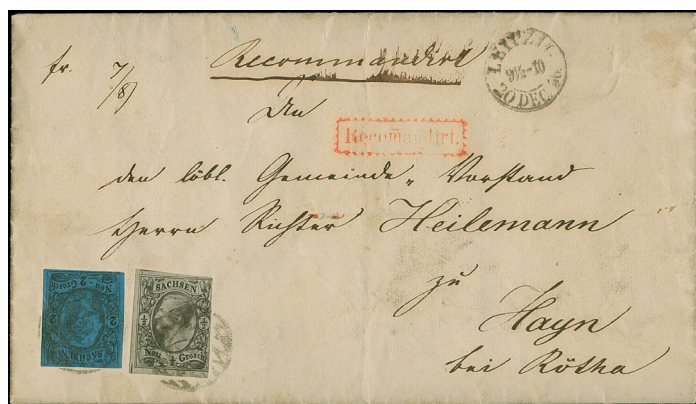 Recommandirt
LEIPZIG
9½-10
20 DEC.
fr. 7/8
An
Recom̅andirt.
den löbl. Gemeinde-Vorstand
Herrn Richter Heilemann
zu
Hayn
bei Rötha
SACHSEN
½ ½
Neu ½ Grosch
SACHSEN
2 2
Neu-2-Grosch